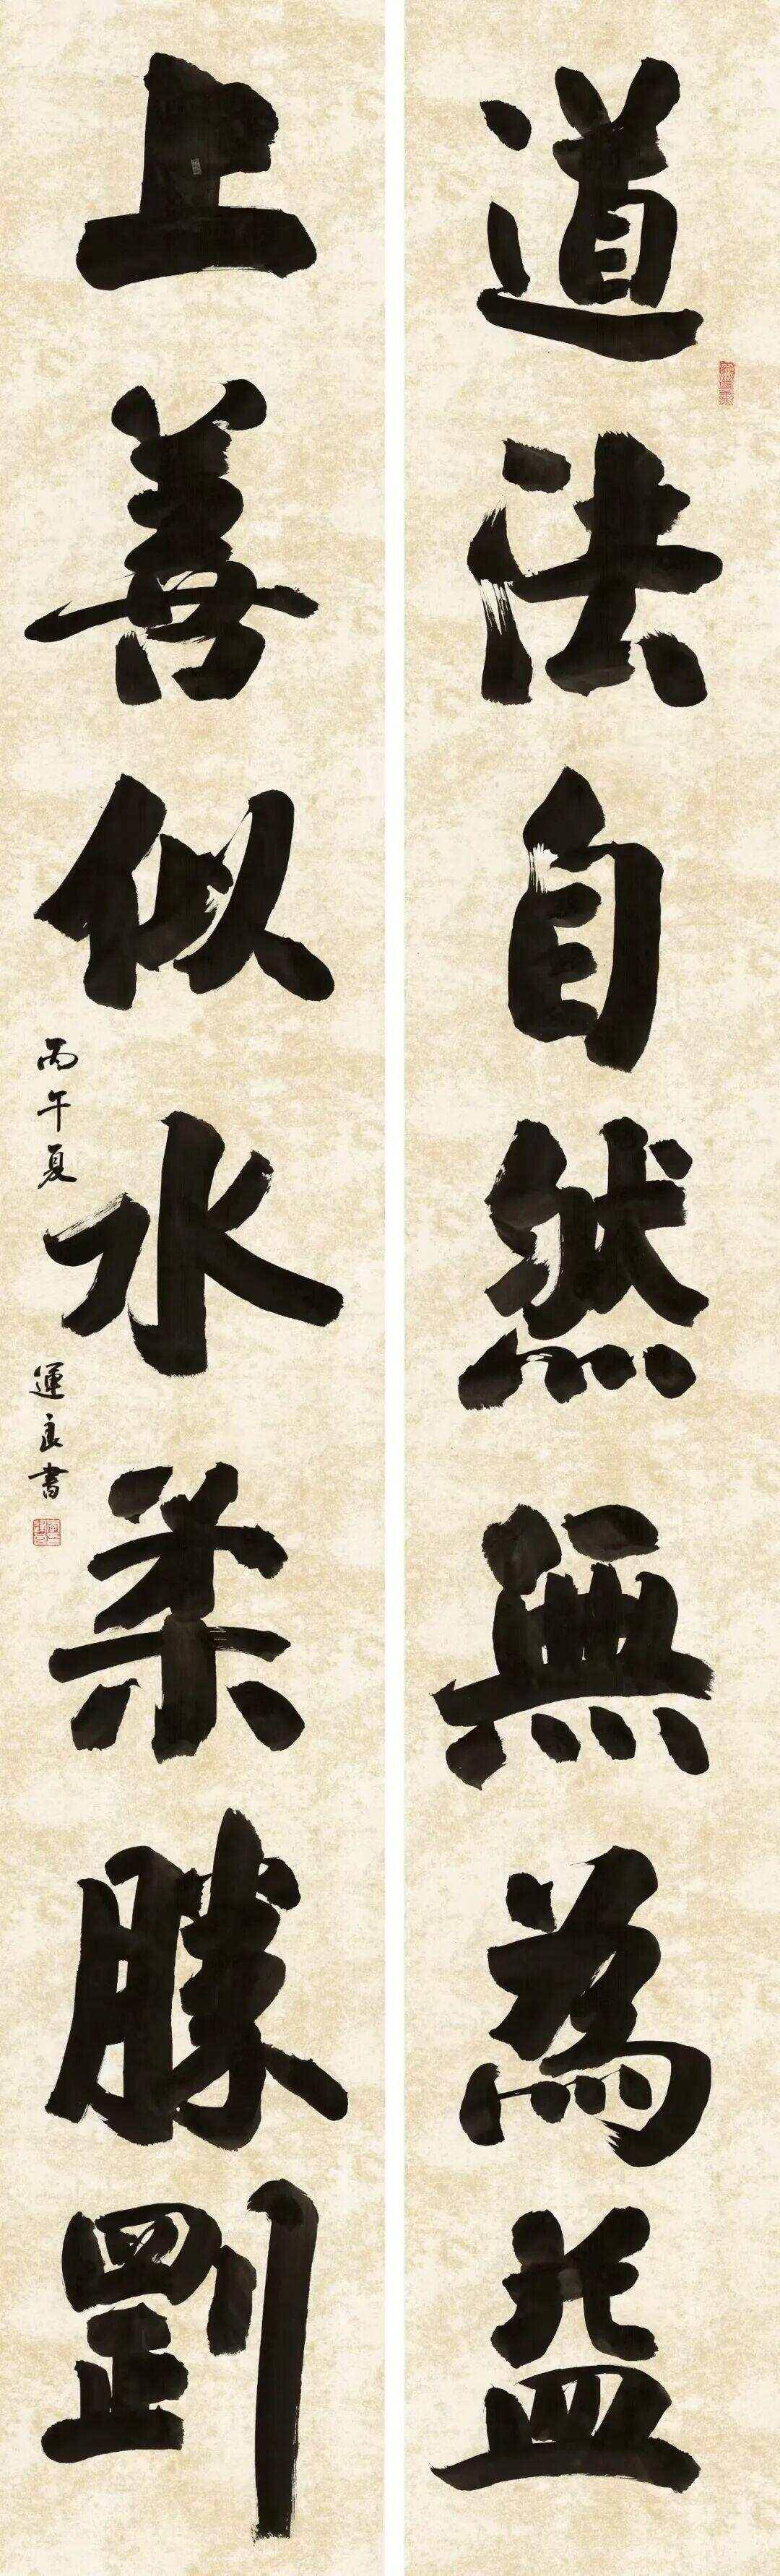 道法自然無為益
上善似水柔勝剛
丙午夏
運良書